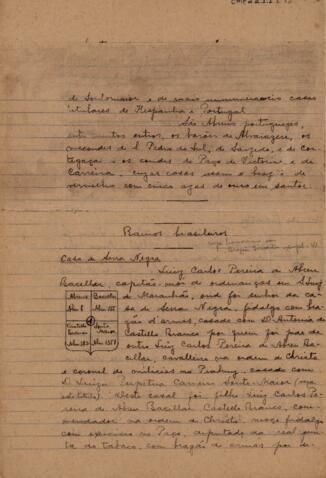 de Soutomaior e de varias innumeraveis casas
titulares de Hespanha e Portugal
São Abreus portugueses,
entre muitos outros, os barões de Alvaiazere, os
viscondes de S. Pedro do Sul, de Sarzedo, e de Cor-
tegaça e os condes de Paço de Victorino e de
Carreira, cujas casas usam o braço de
vermelho com cinco azas de ouro em santor.
Ramos brasileiros
Casa de Serra Negra
Luiz Carlos Pereira de Abreu
Bacellar, capitão-mór de ordenanças em
Maranhão, onde foi senhor da casa
de Serra Negra, fidalgo com bra-
zão d'armas, casado com D. Antonia de
Castello Branco por quem foi pae de
outro Luiz Carlos Pereira de Abreu Ba-
cellar, cavalleiro na ordem de Christo
e coronel de milicias no Piauhy, casado com
D. Luiza Perpetua Carneiro Souto-Maior
Deste casal foi filho Luiz Carlos Pe-
reira de Abreu Bacellar Castello Branco, com-
mendador na ordem de Christo, moço fidalgo
com exercicio no Paço, deputado da real jun-
ta do tabaco, com brazão de armas por
Abreu
Bacellar
Castello
Branco
Souto
Maior